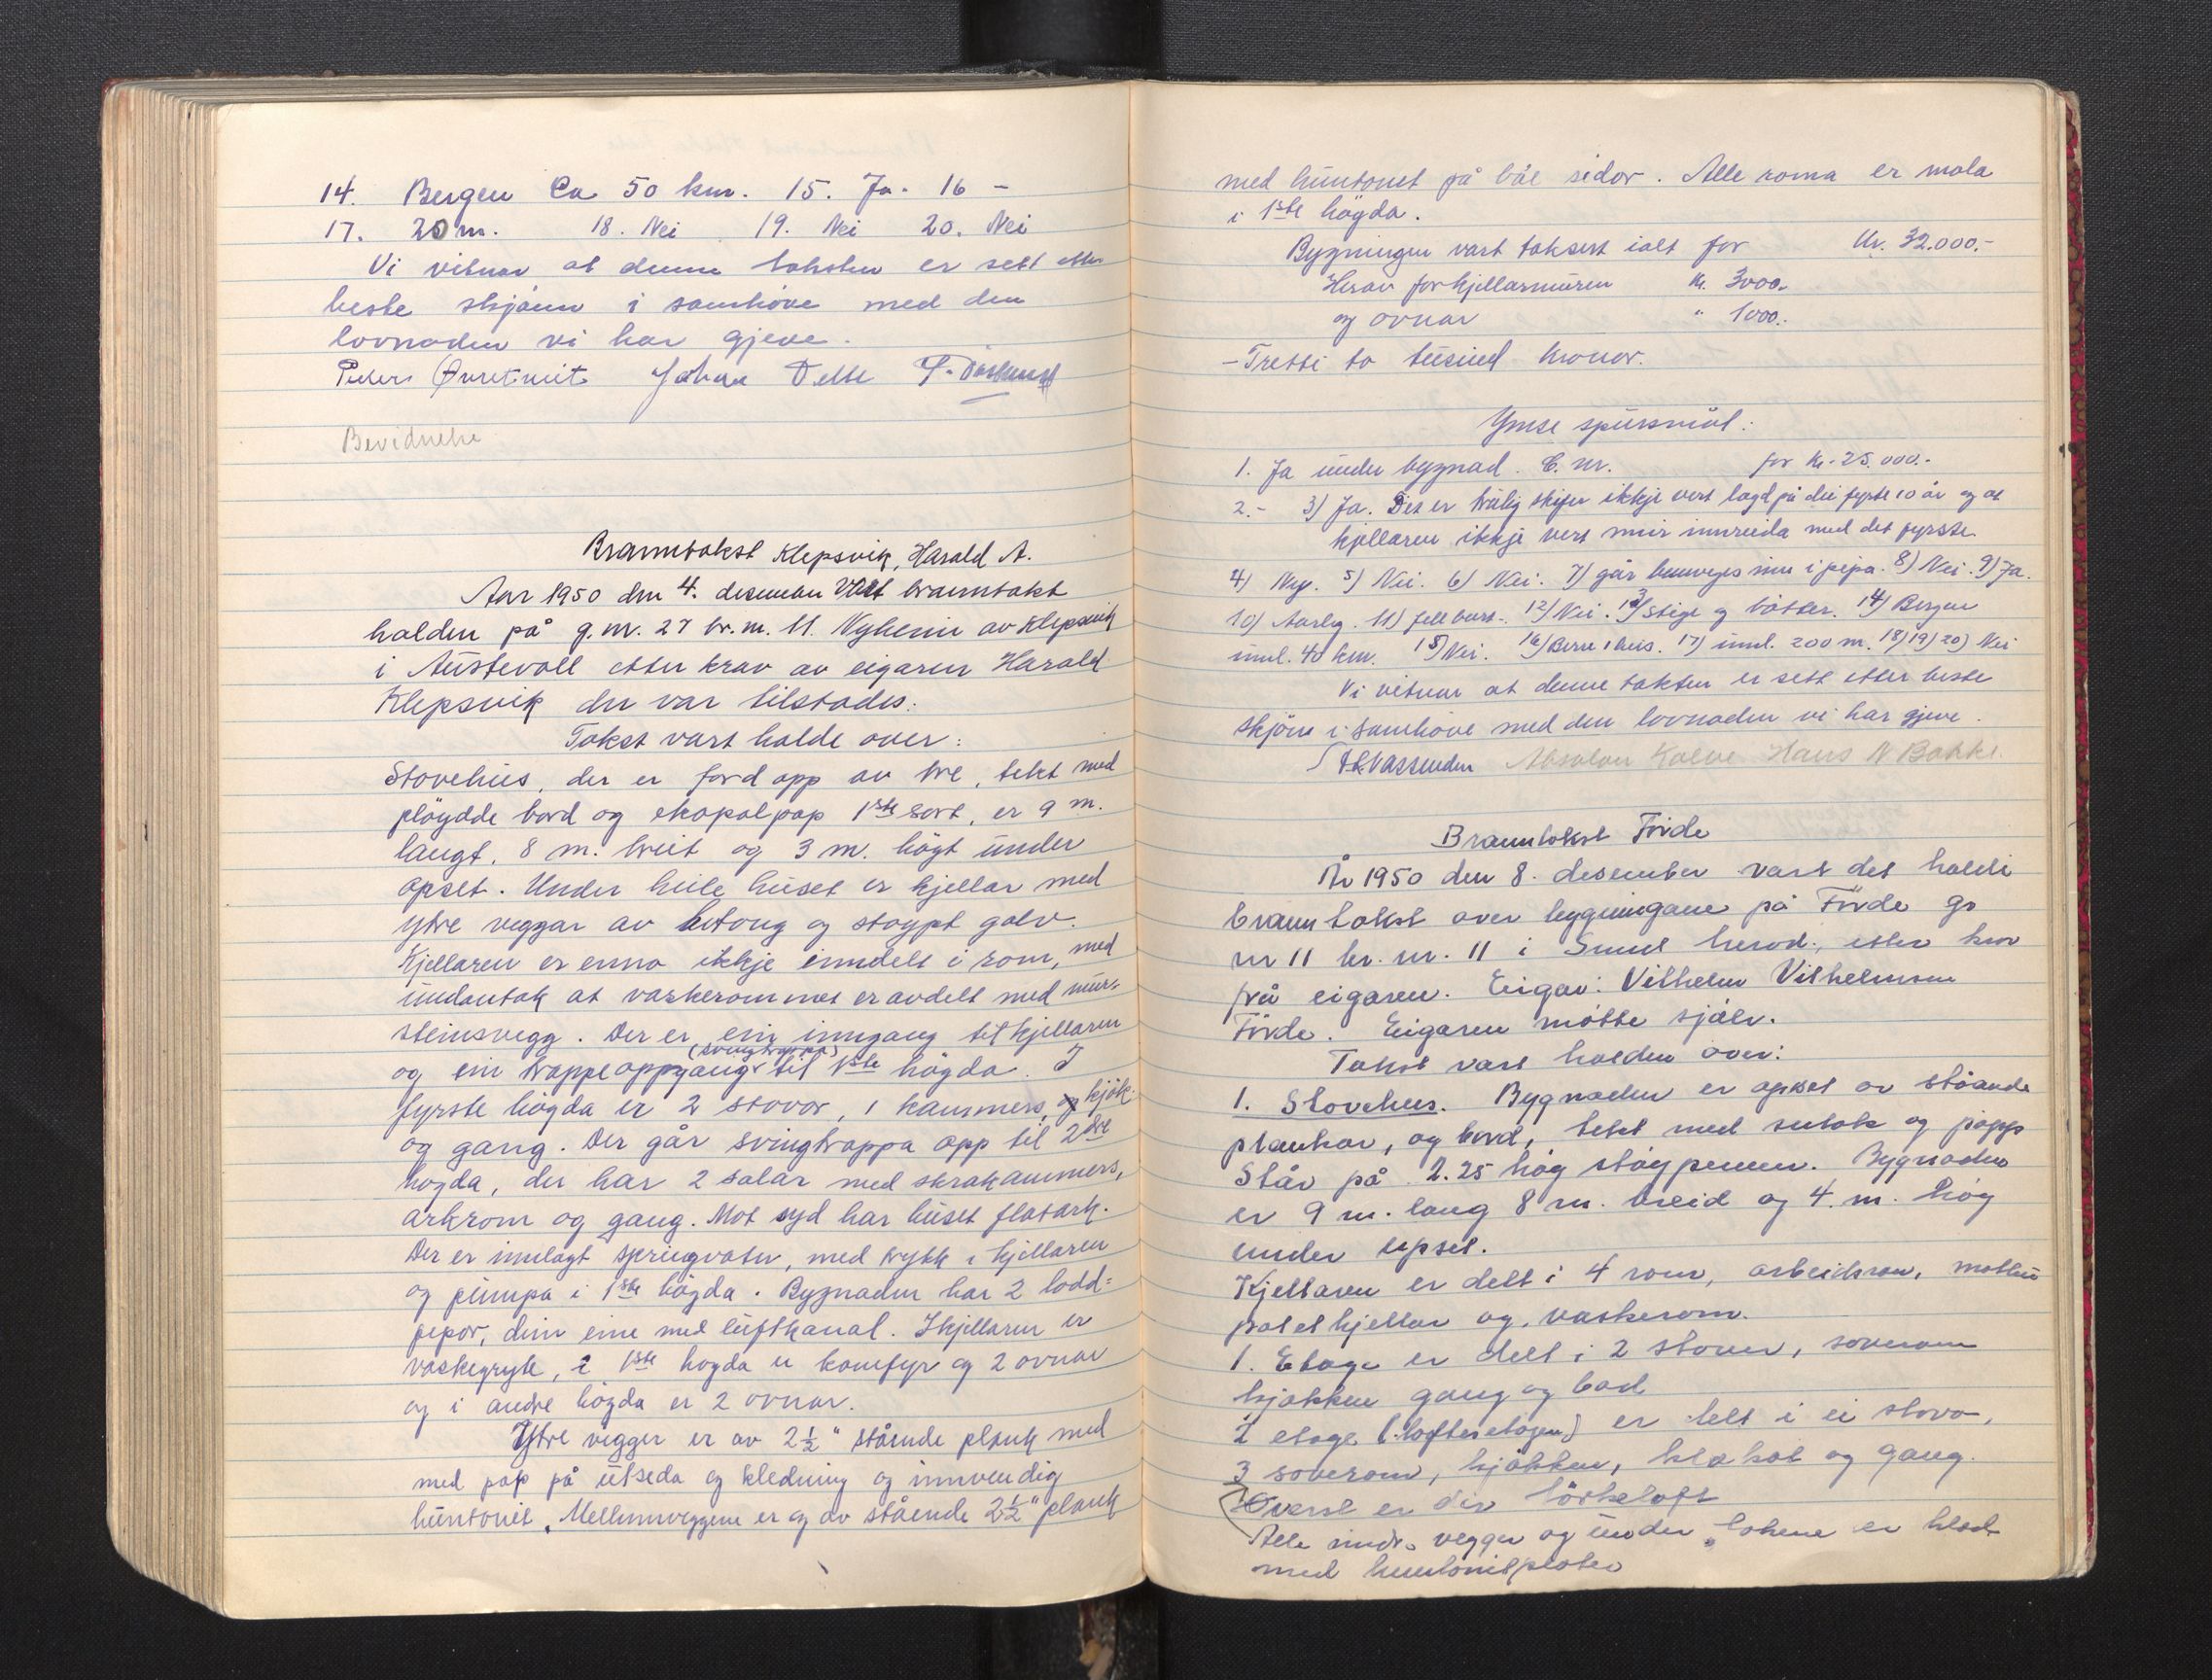 14. Bergen Ca 50 km. 15. Ja. 16 –
17. 20 m. 18. Nei 19. Nei 20. Nei
Vi vitnar at denne taksten er sett etter
beste skjønn i samhøve med den
lovnaden vi har gjeve.
Peder Øvretveit Johan
Bevidnelse
Branntakst Klepsvik, Harald A.
Aar 1950 den 4. desember vart branntakst
halden på g.nr. 27 br.nr. 11. Nyheim av Klepsvik
i Austevoll etter krav av eigaren Harald
Klepsvik der var tilstades.
Takst vart halde over:
Stovehus, der er førd opp av tre, tekt med
pløydde bord og ekopalpap 1ste sort, er 9 m.
langt, 8 m. breit og 3 m. høgt under
opset. Under heile huset er kjellar med
ytre veggar av betong og støypt golv.
Kjellaren er enno ikkje inndelt i rom, med
undantak at vaskerommet er avdelt med mur-
steinsvegg. Der er ein inngang til kjellaren
og ein trappeoppgang (svingtrappa) til 1ste høgda. I
fyrste høgda er 2 stovor, 1 kammers, og kjøk.
og gang. Der går svingtrappa opp til 2dre
høgda, der har 2 salar med skrakammers,
arkrom og gang. Mot syd har huset flatark.
Der er innlagt springvatn, med trykk i kjellaren
og pumpa i 1ste høgda. Bygnaden har 2 lodd=
pipor, den eine med luftkanal. I kjellaren er
vaskegryte, i 1ste høgda er komfyr og 2 ovnar
og i andre høgda er 2 ovnar.
Ytre vegger er av 2½" stående plank med
med pap på utsida og kledning og innvendig
huntonit. Mellomveggene er og av stående 2½" plank
med huntonit på båe sidor. Alle roma er mala
i 1ste høgda.
Bygningen vart taksert ialt for Kr. 32.000.-
Herav for kjellarmuren Kr. 3000.-
og ovnar " 1000.-
– Tretti to tusund kronor.
Ymse spursmål:
1. Ja under bygnad. C. nr. for Kr. 25.000.-
2.- 3) Ja. Det er trulig skifer ikkje vert lagd på dei fyrste 10 år og at
kjellaren ikkje vert meir innreida med det fyrste.
4) Nye. 5) Nei. 6) Nei. 7) går beinveges inn i pipa. 8) Nei. 9) Ja.
10) Aarleg. 11) fellbart. 12) Nei. 13) Stige og bøtter. 14) Bergen
uml. 40 km. 15) Nei. 16) Berre 1 hus. 17) uml. 200 m. 18) 19) 20) Nei
Vi vitnar at denne taksten er sett etter beste
skjønn i samhøve med den lovnaden vi har gjeve.
Vassenden Absalon Kalve Hans N Bakke.
Branntakst Førde
År 1950 den 8. desember vart det haldi
branntakst over bygningane på Førde gr
nr 11 br. nr. 11 i herad, etter krav
frå eigaren. Eigar: Vilhelm Vilhelmsen
Førde. Eigaren møtte sjølv.
Takst vart halden over:
1. Stovehus. Bygnaden er opset av ståande
plankar, og bord, tekt med sutak og papp
Står på 2.25 høg støypemur. Bygnaden
er 9 m. lang 8 m. breid og 4. m. høg
under upset.
Kjellaren er delt i 4 rom, arbeidsrom, matbu
potetkjellar og vaskerom.
1. Etage er delt i 2 stover, soverom
kjøkken gang og bad
2 etage (: loftsetagen) er delt i ei stova,
3 soverom, kjøkken, klekot og gang.
Øverst er der tørkeloft
Alle indre vegger og under takene er kledt
med huntonitplater